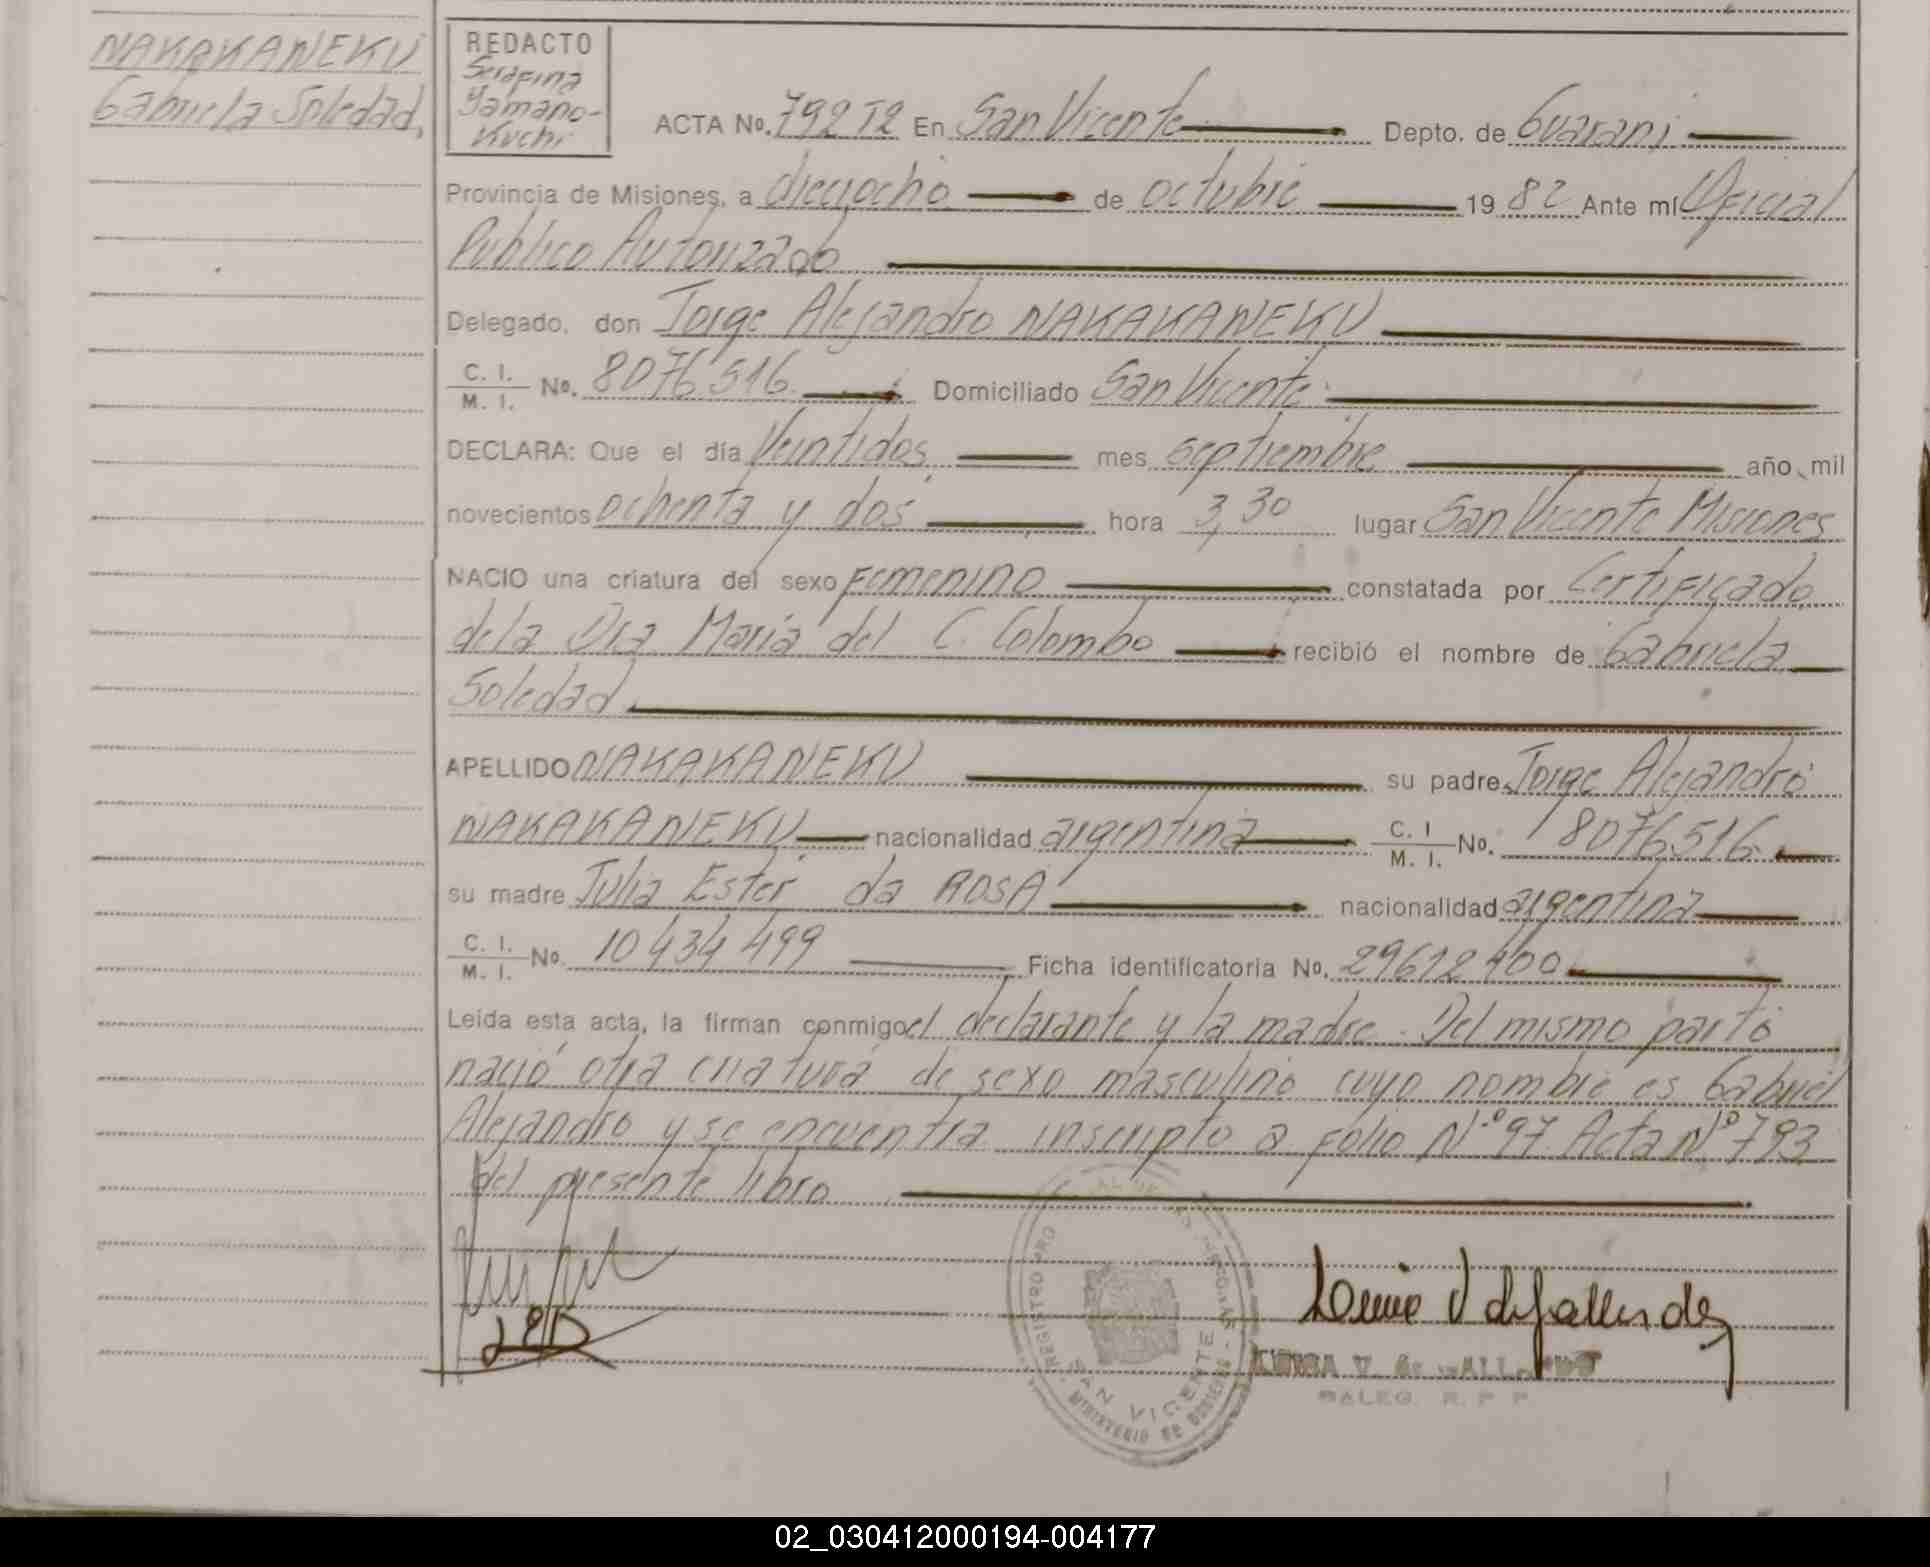 NAKAKANEKU
Gabriela Soledad,
REDACTO
Serafina
Yamano-
Kuchi
ACTA No. 792 T2 En San Vicente Depto. de Guarani
Provincia de Misiones, a dieciocho de octubre 19 82 Ante mí Oficial
Publico Autorizado
Delegado, don Jorge Alejandro NAKAKANEKU
C. I. / M. I. No. 8076516 Domiciliado San Vicente
DECLARA: Que el día Veintidos mes septiembre año mil
novecientos ochenta y dos hora 3,30 lugar San Vicente Misiones
NACIO una criatura del sexo Femenino constatada por Certificado
de la Dra Maria del C. Colombo recibió el nombre de Gabriela
Soledad
APELLIDO NAKAKANEKU su padre Jorge Alejandro
NAKAKANEKU nacionalidad argentina C. I / M. I. No. 8076516
su madre Julia Ester da ROSA nacionalidad argentina
C. I. / M. I. No. 10434499 Ficha identificatoria No. 29612400
Leida esta acta, la firman conmigo el declarante y la madre. Del mismo parto
nació otra criatura de sexo masculino cuyo nombre es Gabriel
Alejandro y se encuentra inscripto a Folio N° 97 Acta N° 793
del presente libro
REGISTRO PRO
SAN VICENTE
MINISTERIO DE GOBIERNO
02_030412000194-004177